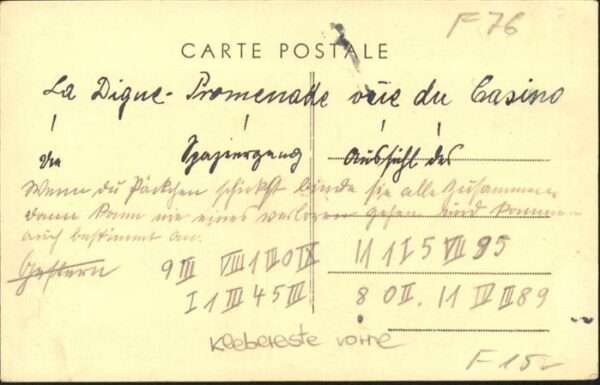 F 76
CARTE POSTALE
La Digue-Promenade vue du Casino
die Spaziergang Aussicht des
Wenn du Päckchen schickst binde sie alle Zusammen
Dann kann nie eines verloren gehen und kommen
auch bestimmt an.
Gestern
9 III VIII 1 II 0 IX 11 1 I 5 VII 95
I 1 III 45 IV 8 0 II. 11 IV III 89
Klebereste vorne
F 15-